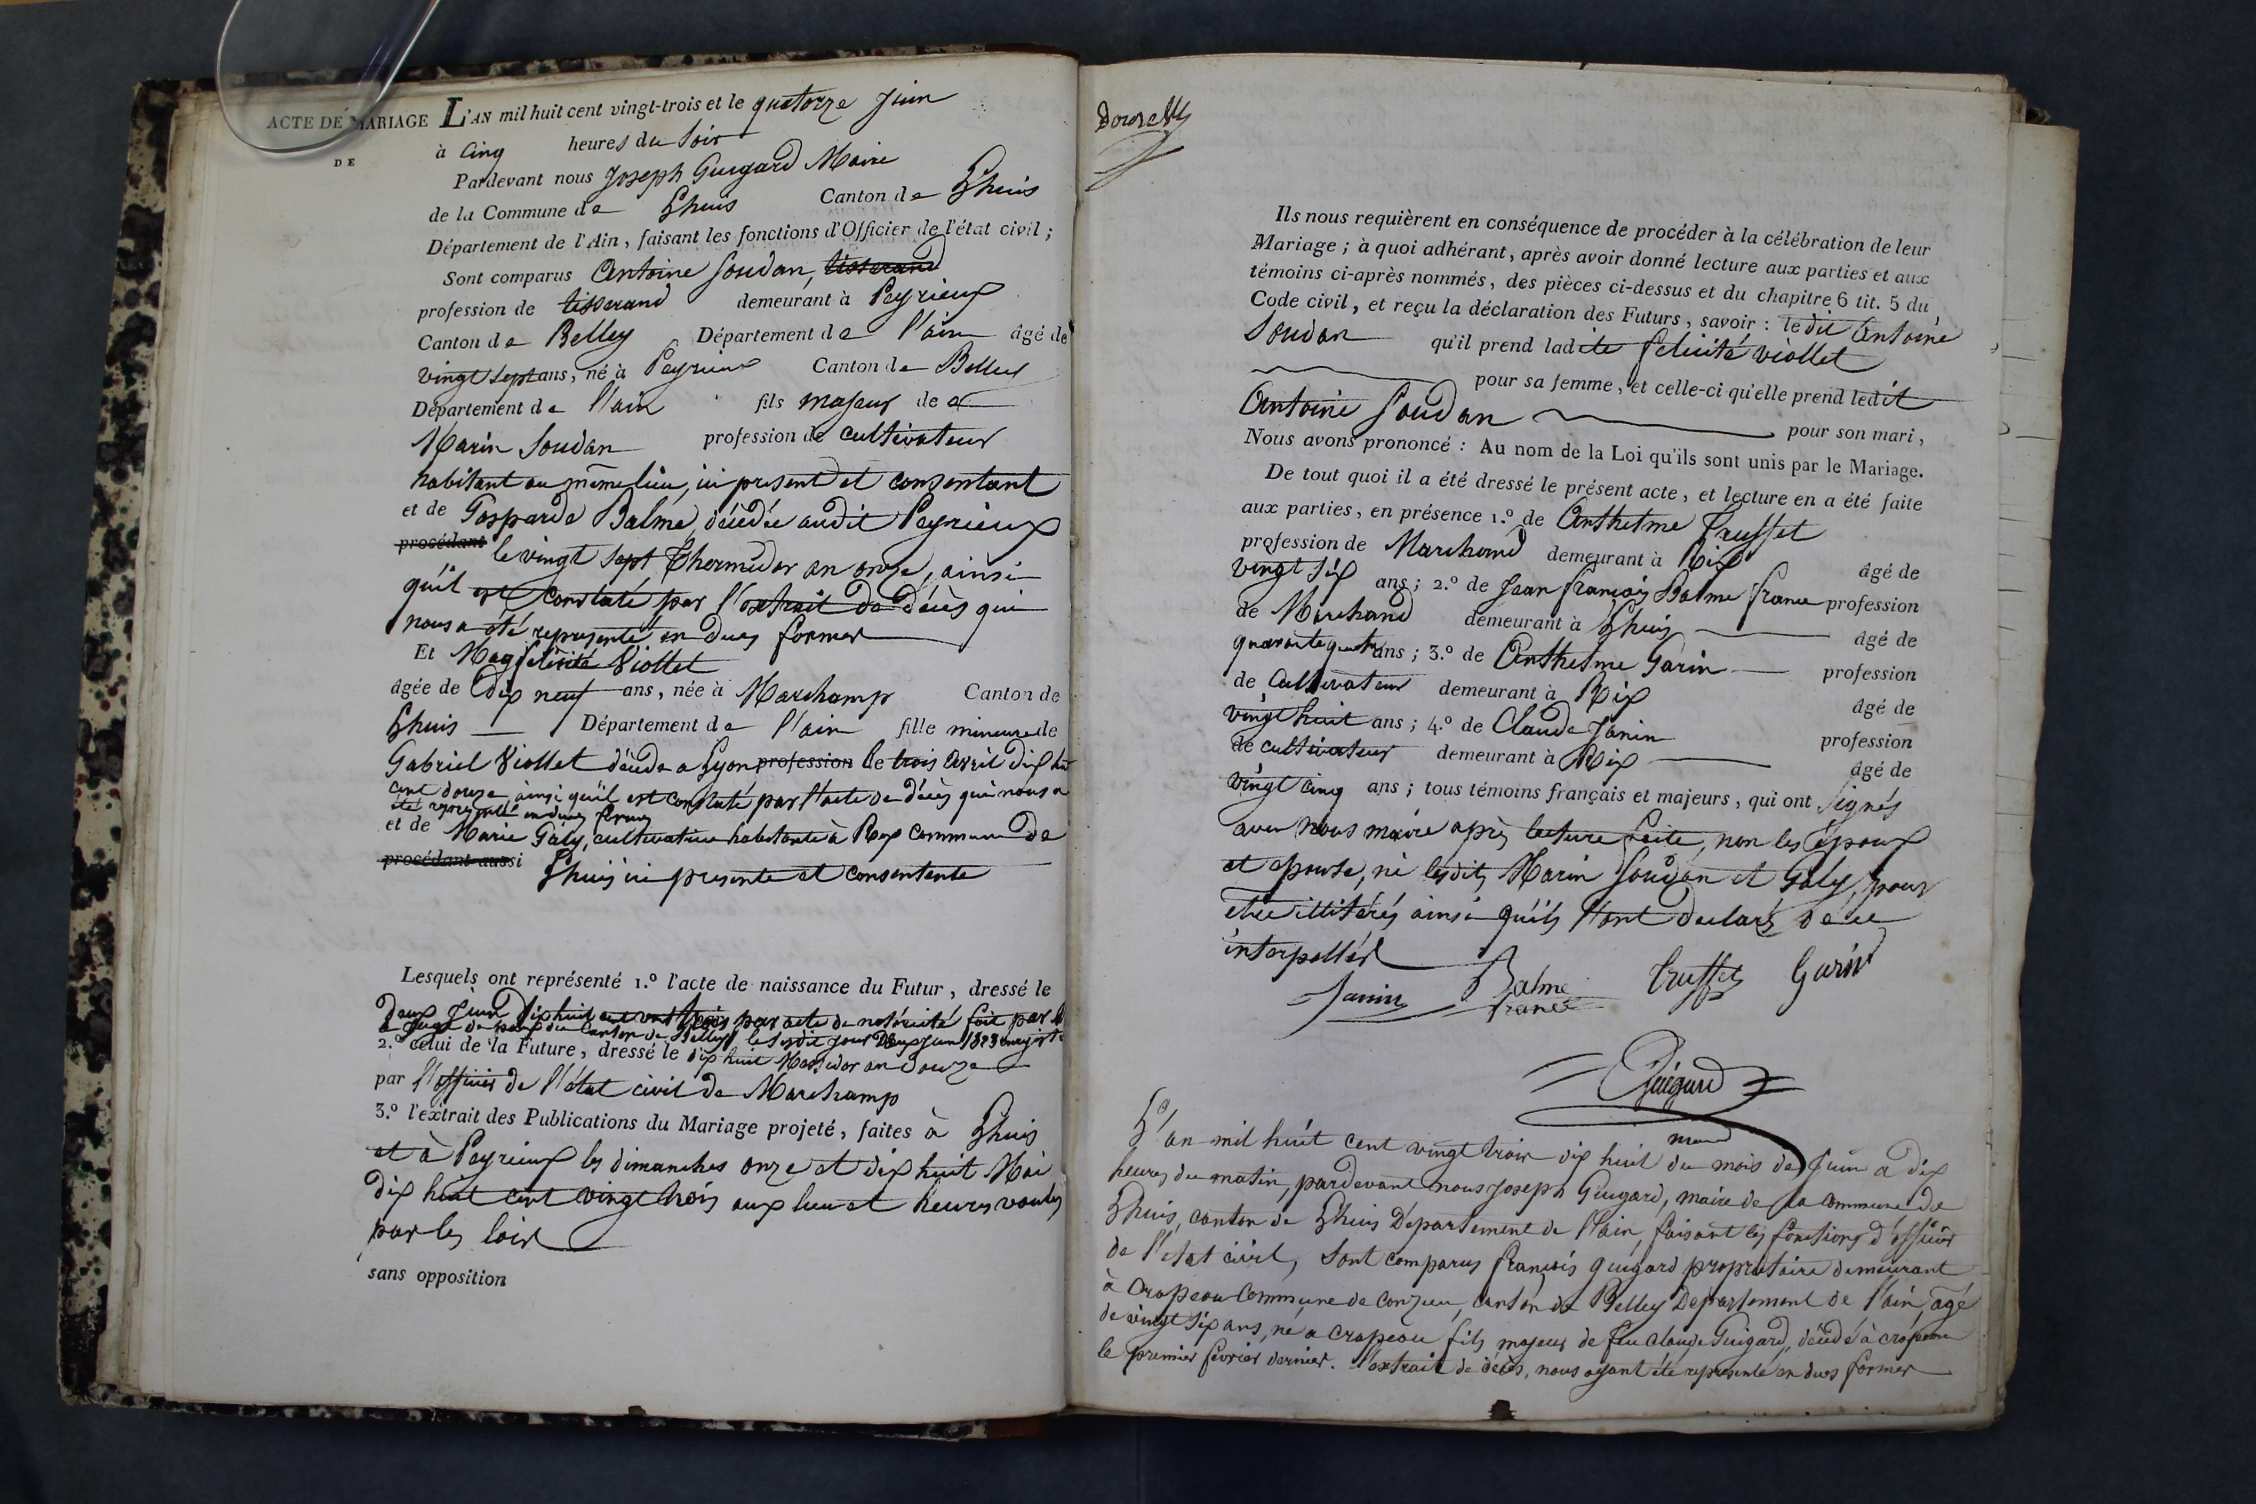 ACTE DE MARIAGE
DE
L'AN mil huit cent vingt-trois et le quatorze juin
à cinq heures du soir
Pardevant nous Joseph Guigard Maire
de la Commune de Lhuis Canton de Lhuis
Département de l'Ain, faisant les fonctions d'Officier de l'état civil ;
Sont comparus Antoine Soudan, tisserand
profession de tisserand demeurant à Peyrieux
Canton de Belley Département de l'ain âgé de
vingt sept ans, né à Peyrieux Canton de Belley
Département de l'ain fils majeur de
Marin Soudan profession de cultivateur
habitant au même lieu, ici present et consentant
et de Gasparde Balme, décédée audit Peyrieux
procédant le vingt sept Thermidor an onze, ainsi
qu'il est constaté par l'extrait de décès qui
nous a été representé en dues formes
Et Marg. felicité Viollet
âgée de dix neuf ans, née à Marchamp Canton de
Lhuis Département de l'ain fille mineure de
Gabriel Viollet décédé a Lyon profession le trois avril dix huit
cent douze ainsi qu'il est constaté par l'acte de décès qui nous a
été representé en dues formes
et de Marie Galy, cultivatrice habitante à Rix commune de
procédant aussi Lhuis ici presente et consentente
Lesquels ont représenté 1.º l'acte de naissance du Futur, dressé le
deux juin dix huit cent vingt trois par acte de notoriété fait par le
juge de paix du Canton de Belley le susdit jour deux juin 1823 enregistré
2.º celui de la Future, dressé le dix huit Messidor an douze
par l'officier de l'état civil de Marchamp
3.º l'extrait des Publications du Mariage projeté, faites à Lhuis
et à Peyrieux les dimanches onze et dix huit Mai
dix huit cent vingt trois aux lieu et heures voulus
par les loix
sans opposition
Ils nous requièrent en conséquence de procéder à la célébration de leur
Mariage ; à quoi adhérant, après avoir donné lecture aux parties et aux
témoins ci-après nommés, des pièces ci-dessus et du chapitre 6 tit. 5 du
Code civil, et reçu la déclaration des Futurs, savoir : ledit Antoine
Soudan qu'il prend ladite felicité viollet
pour sa femme, et celle-ci qu'elle prend ledit
Antoine Soudan pour son mari,
Nous avons prononcé : Au nom de la Loi qu'ils sont unis par le Mariage.
De tout quoi il a été dressé le présent acte, et lecture en a été faite
aux parties, en présence 1.º de Anthelme Truffet
profession de Marchand demeurant à Rix âgé de
vingt six ans ; 2.º de Jean françois Balme france profession
de Marchand demeurant à Lhuis âgé de
quarante quatre ans ; 3.º de Anthelme Garin profession
de Cultivateur demeurant à Rix âgé de
vingt huit ans ; 4.º de Claude Janin profession
de cultivateur demeurant à Rix âgé de
vingt cinq ans ; tous témoins français et majeurs, qui ont signés
avec nous maire après lecture faite, non les époux
et epouse, ni lesdits Marin Soudan et Galy, pour
etre illitérés ainsi qu'ils l'ont declaré de ce
interpellés
Janin Balme france truffet Garin
Guigard
L'an mil huit cent vingt trois dix huit du mois de juin a dix
heures du matin, pardevant nous Joseph Guigard, maire de la commune de
Lhuis, canton de Lhuis Département de l'ain, faisant les fonctions d'officier
de l'etat civil, sont comparus françois guigard propriétaire demeurant
à Crapeou Commune de Conzieu, canton de Belley Departement de l'ain, âgé
de vingt six ans, né a crapeou fils majeur de feu claude Guigard, décédé à crapeou
le premier fevrier dernier. l'extrait de décès, nous ayant été representé en dues formes